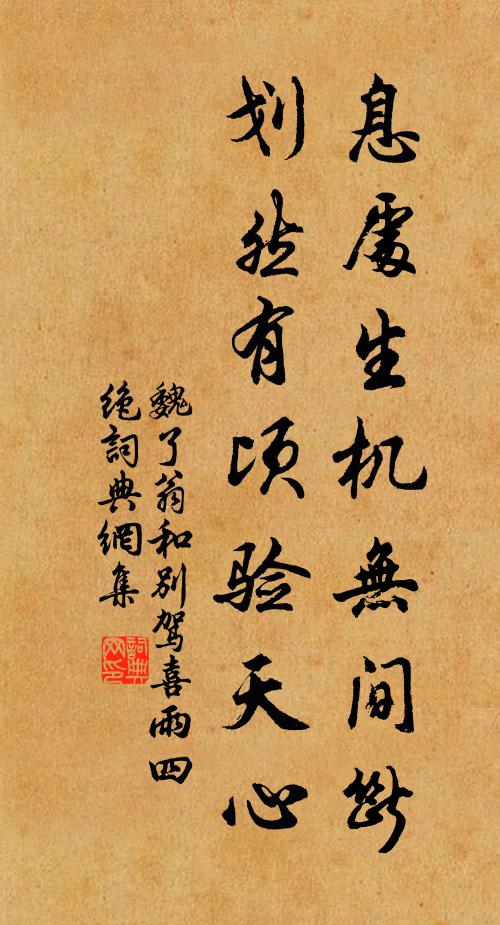 息處生机無間斷
划然有顷验天心
魏了翁和别駕喜雨四
绝詞典網集
詞典
网印